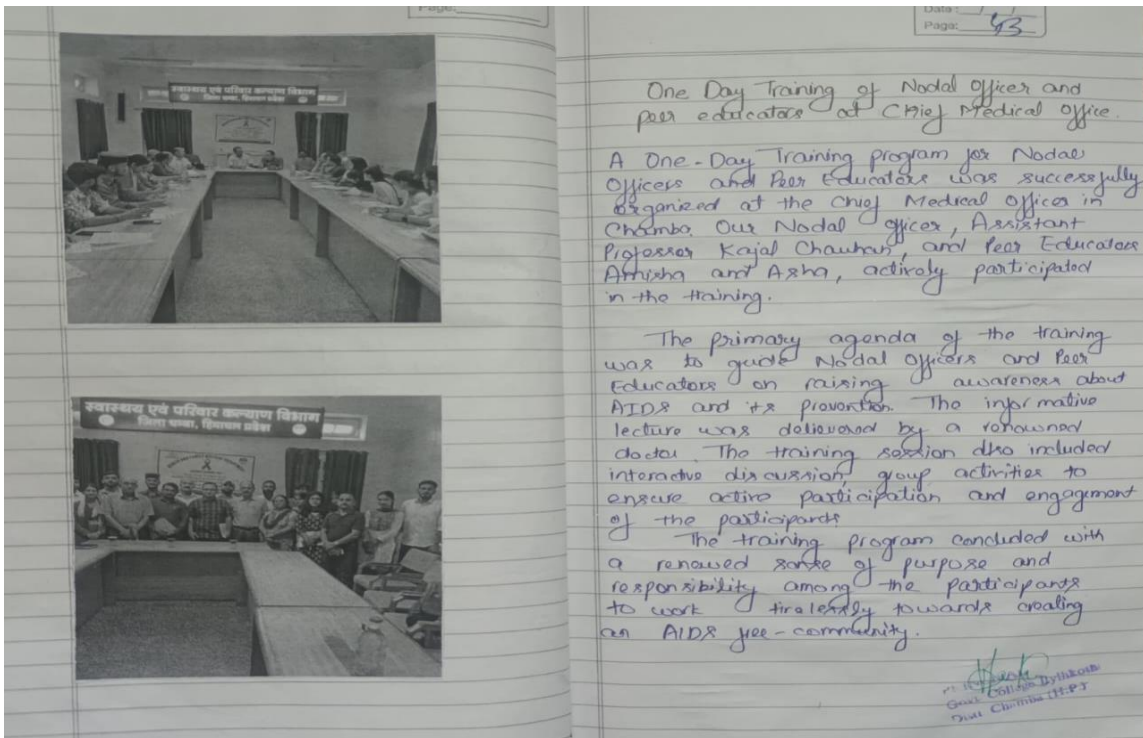 Page:
स्वास्थ्य एवं परिवार कल्याण विभाग
जिला चम्बा, हिमाचल प्रदेश
स्वास्थ्य एवं परिवार कल्याण विभाग
जिला चम्बा, हिमाचल प्रदेश
Date:
Page: 43
One Day Training of Nodal Officer and
peer educators at Chief Medical Office.
A One-Day Training program for Nodal
Officers and Peer Educators was successfully
organized at the Chief Medical Officer in
Chamba. Our Nodal officer, Assistant
Professor Kajal Chauhan, and Peer Educators
Amisha and Asha, actively participated
in the training.
The primary agenda of the training
was to guide Nodal Officers and Peer
Educators on raising awareness about
AIDS and its prevention. The informative
lecture was delievered by a renowned
doctor. The training session also included
interactive discussion, group activities to
ensure active participation and engagement
of the participants
The training program concluded with
a renewed sense of purpose and
responsibility among the participants
to work tirelessly towards creating
an AIDS free-community.
Govt. College
Distt. Chamba (H.P.)